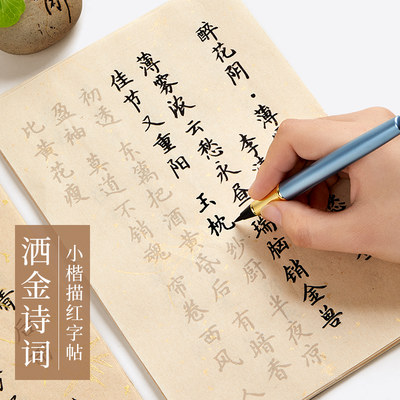 醉花阴·薄
李
薄雾浓云愁永昼 瑞脑销金兽
佳节又重阳 玉枕纱厨 半夜凉
初透 东篱把酒黄昏后 有暗香
盈袖 莫道不销魂 帘卷西风 人
比黄花瘦
小楷描红字帖
洒金诗词